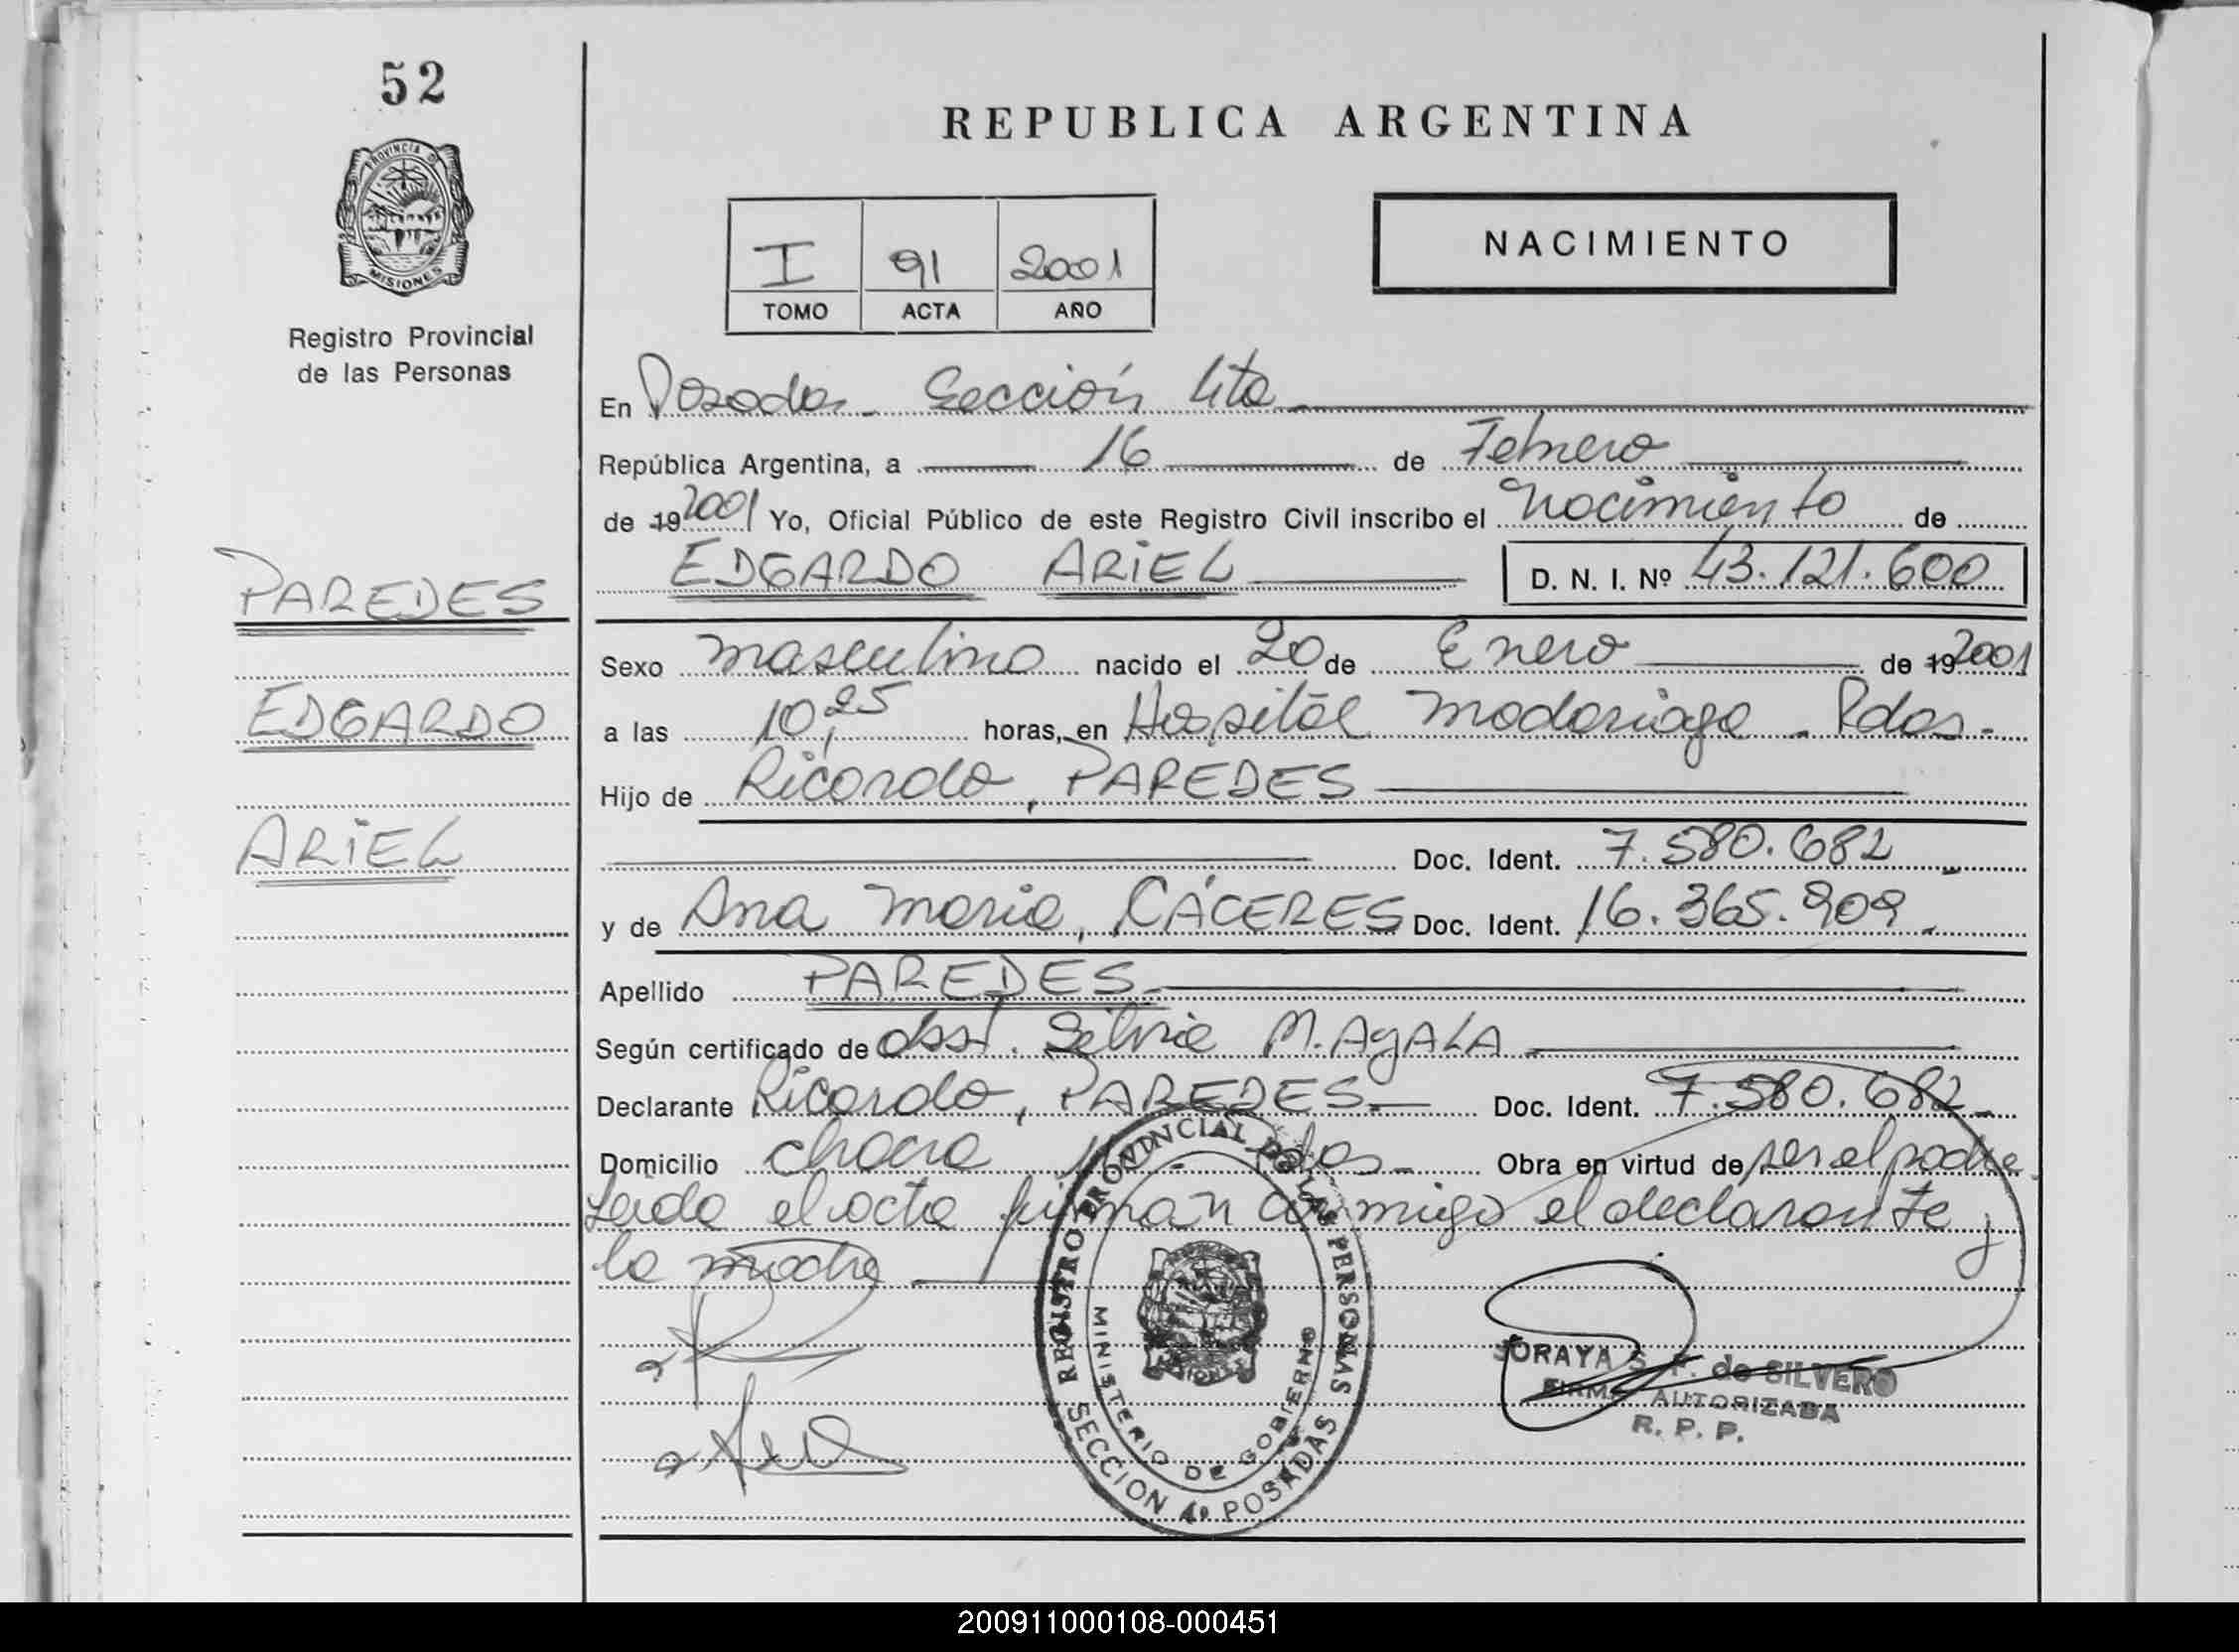 52
PROVINCIA DE
MISIONES
Registro Provincial
de las Personas
PAREDES
EDGARDO
ARIEL
REPUBLICA ARGENTINA
I 91 2001
TOMO ACTA AÑO
NACIMIENTO
En Posadas - Sección 4ta
República Argentina, a 16 de Febrero
de 19 2001 Yo, Oficial Público de este Registro Civil inscribo el Nacimiento de
EDGARDO ARIEL D. N. I. Nº 43.121.600
Sexo masculino nacido el 20 de Enero de 19 2001
a las 10,25 horas, en Hospital Madariaga - Pdas.
Hijo de Ricardo, PAREDES
Doc. Ident. 7.580.682
y de Ana Maria, CÁCERES Doc. Ident. 16.365.909
Apellido PAREDES
Según certificado de Obst. Silvia M. AyALA
Declarante Ricardo, PAREDES Doc. Ident. 7.580.682
Domicilio chacra Pdas Obra en virtud de ser el padre.
Leida el acta firman conmigo el declarante y
la madre
REGISTRO PROVINCIAL DE LAS PERSONAS
MINISTERIO DE GOBIERNO
SECCION 4º POSADAS
SORAYA S. F. de SILVERO
FIRMA AUTORIZADA
R. P. P.
200911000108-000451